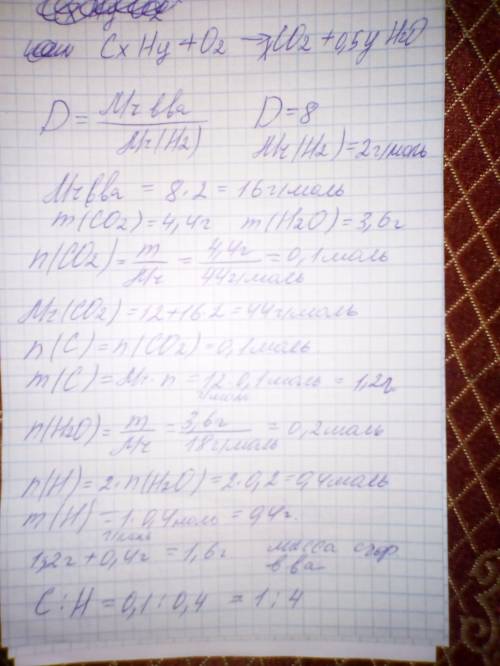 CxHy + O2 → xCO2 + 0,5y H2O
D = Mr вва / Mr(H2) D = 8
Mr(H2) = 2г/моль
Mr вва = 8·2 = 16г/моль
m(CO2) = 4,4г m(H2O) = 3,6г
n(CO2) = m/Mr = 4,4г/44г/моль = 0,1моль
Mr(CO2) = 12+16·2 = 44г/моль
n(C) = n(CO2) = 0,1моль
m(C) = Mr·n = 12г/моль·0,1моль = 1,2г
n(H2O) = m/Mr = 3,6г/18г/моль = 0,2моль
n(H) = 2·n(H2O) = 2·0,2 = 0,4моль
m(H) = 1г/моль·0,4моль = 0,4г.
1,2г + 0,4г = 1,6г масса сгор
в-ва
C : H = 0,1 : 0,4 = 1 : 4